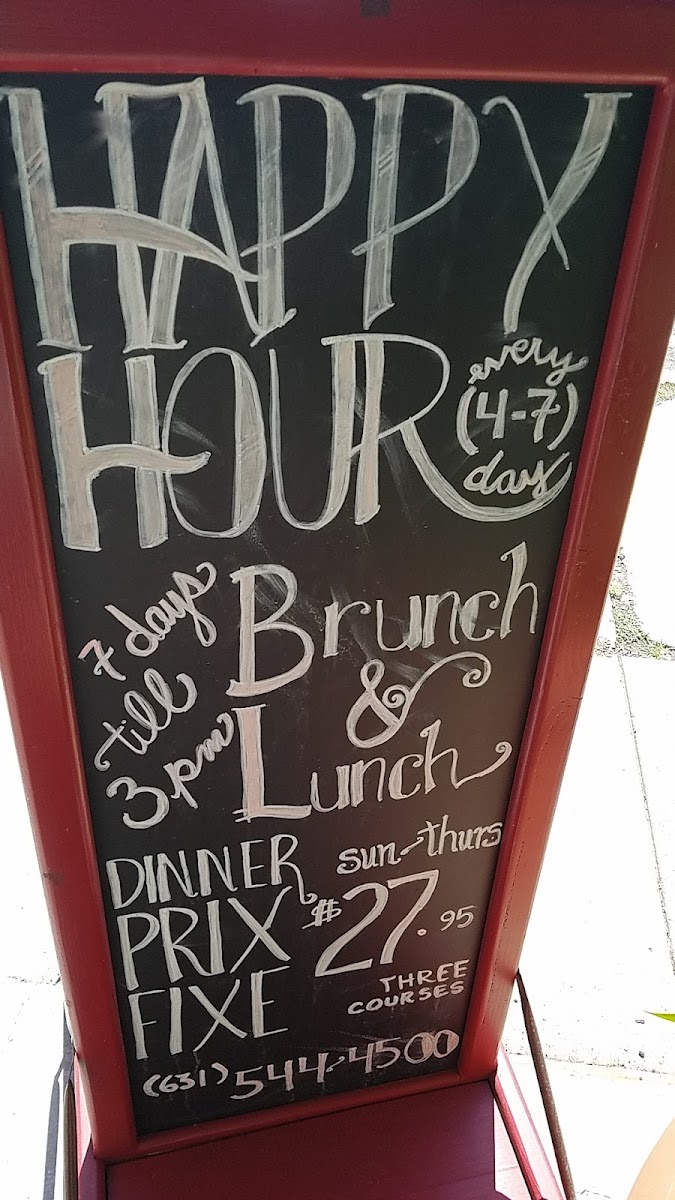 HAPPY
HOUR
every
(4-7)
day
7 days
till
3pm
Brunch
&
Lunch
DINNER
PRIX
FIXE
sun-thurs
$27.95
THREE
COURSES
(631) 544-4500